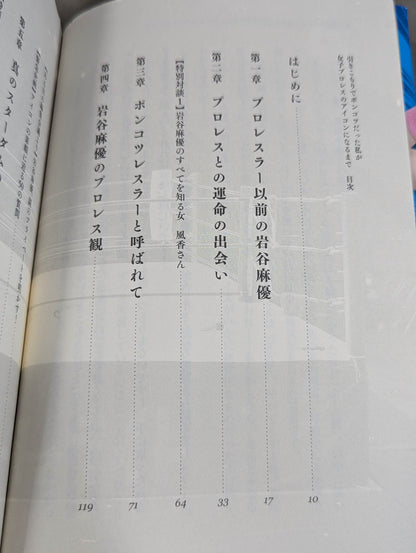 引きこもりでポンコツだった私が
女子プロレスのアイコンになるまで 目次
はじめに 10
第一章 プロレスラー以前の岩谷麻優 17
第二章 プロレスとの運命の出会い 33
【特別対談1】岩谷麻優のすべてを知る女 風香さん 64
第三章 ポンコツレスラーと呼ばれて 71
第四章 岩谷麻優のプロレス観 119
第五章 真のスターダム